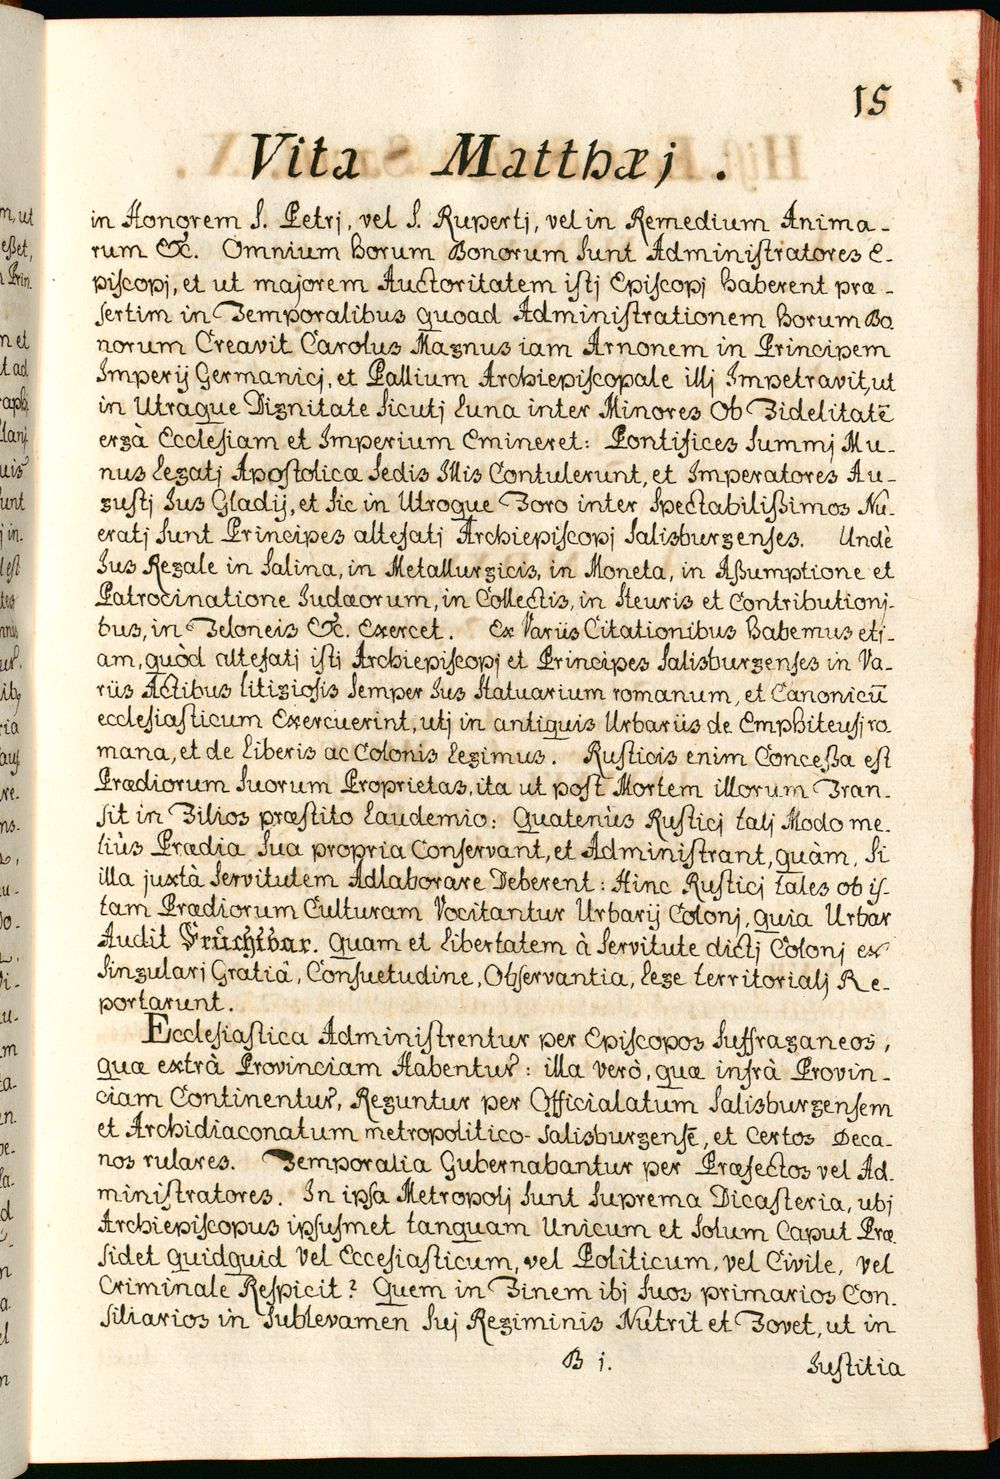 15
Vita Matthæj.
in Honorem S. Petrj, vel S. Rupertj, vel in Remedium Anima-
rum &c. Omnium horum Bonorum sunt Administratores E-
piscopj, et ut majorem Auctoritatem istj Episcopj haberent præ-
sertim in Temporalibus quoad Administrationem horum Bo
norum Creavit Carolus Magnus iam Arnonem in Principem
Imperij Germanicj, et Pallium Archiepiscopale illj Impetravit, ut
in Utraque Dignitate sicutj Luna inter Minores ob Fidelitatē
ergà Ecclesiam et Imperium Emineret: Pontifices Summj Mu-
nus Legatj Apostolicæ Sedis Illis Contulerunt, et Imperatores Au-
gustj Jus Gladij, et sic in Utroque Foro inter Spectabilißimos Nu-
eratj sunt Principes altefatj Archiepiscopj Salisburgenses. Undè
Jus Regale in Salina, in Metallurgicis, in Moneta, in Aßumptione et
Patrocinatione Judæorum, in Collectis, in Steuris et Contributionj-
bus, in Teloneis &c. Exercet. Ex Variis Citationibus habemus etj-
am, quòd altefatj istj Archiepiscopj et Principes Salisburgenses in Va-
riis Actibus litigiosis semper Jus Statuarium romanum, et Canonicū
ecclesiasticum Exercuerint, utj in antiquis Urbariis de Emphiteusj ro
mana, et de Liberis ac Colonis Legimus. Rusticis enim Conceßa est
Prædiorum Suorum Proprietas, ita ut post Mortem illorum Tran-
sit in Filios præstito Laudemio: Quatenùs Rusticj talj Modo me-
liùs Prædia Sua propria Conservant, et Administrant, quàm, si
illa juxtà servitutem Adlaborare Deberent: Hinc Rusticj tales ob is-
tam Prædiorum Culturam Vocitantur Urbarij Colonj, quia Urbar
Audit Fruchtbar. Quam et Libertatem à Servitute dictj Colonj ex
Singularj Gratiâ, Consuetudine, Observantia, Lege territorialj Re-
portarunt.
Ecclesiastica Administrentur per Episcopos Suffraganeos,
quæ extrà Provinciam Habentur: illa verò, quæ infrà Provin-
ciam Continentur, Reguntur per Officialatum Salisburgensem
et Archidiaconatum metropolitico-Salisburgensē, et Certos Deca-
nos rulares. Temporalia Gubernabantur per Præfectos vel Ad-
ministratores. In ipsa Metropolj sunt Suprema Dicasteria, ubj
Archiepiscopus ipsusmet tanquam Unicum et Solum Caput Præ
sidet quidquid vel Eccesiasticum, vel Politicum, vel Civile, vel
Criminale Respicit? Quem in Finem ibj suos primarios Con-
siliarios in Sublevamen Suj Regiminis Nutrit et Fovet, ut in
B j.
Justitia